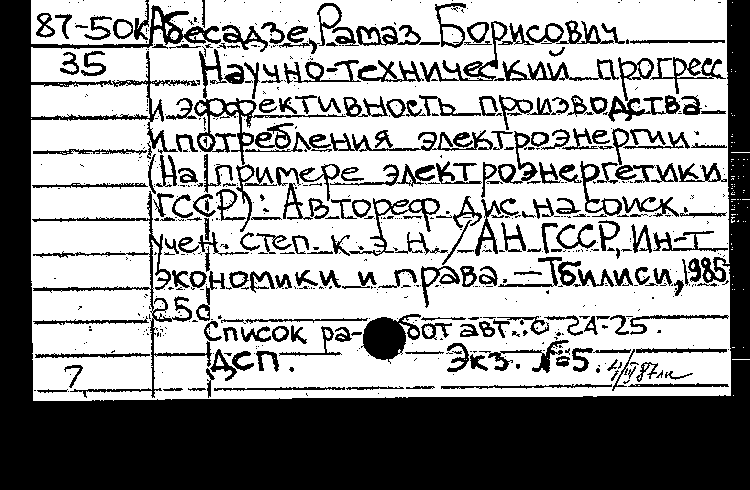 87-50к Абесадзе, Рамаз Борисович
35 Научно-технический прогресс
и эффективность производства
и потребления электроэнергии:
(На примере электроэнергетики
ГССР): Автореф. дис. на соиск.
учен. степ. к. э. н. / АН ГССР, Ин-т
экономики и права. — Тбилиси, 1985
25с.
Список ра- бот авт.: с. 24-25.
ДСП. Экз. №5.
7